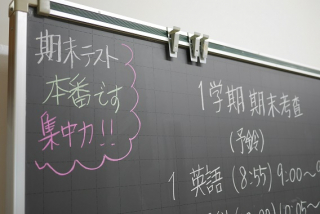 期末テスト
本番です
集中力!!
1学期 期末考査
(予鈴)
1 英語 (8:55) 9:00〜9